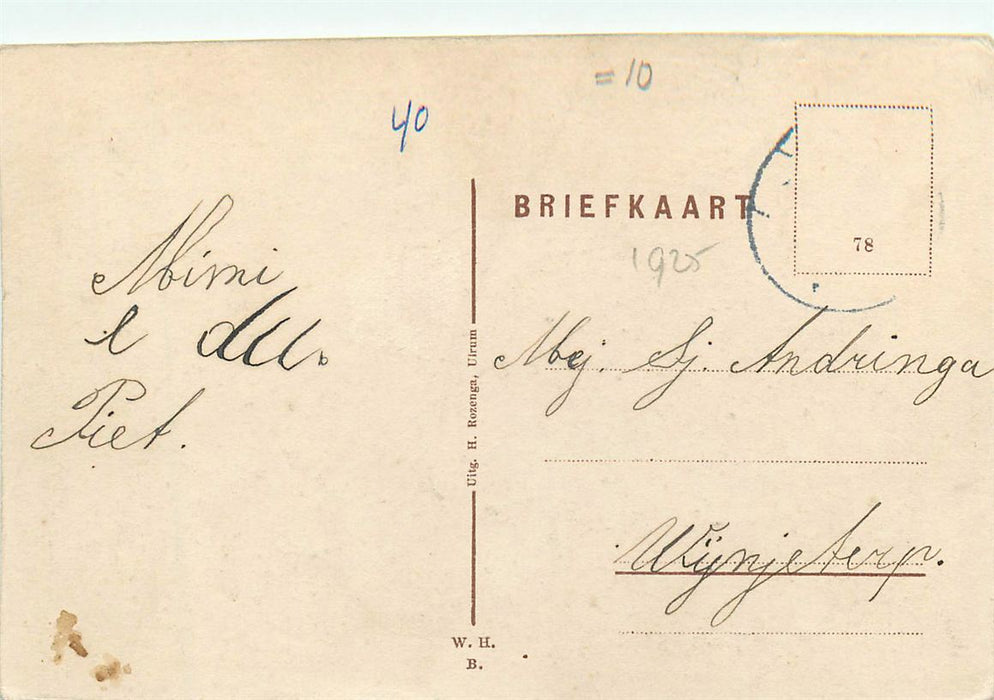 = 10
40
BRIEFKAART
78
1925
Mimi
Piet.
Mej. Sj. Andringa
Wijnjeterp.
Uitg. H. Rozenga, Ulrum
W. H.
B.